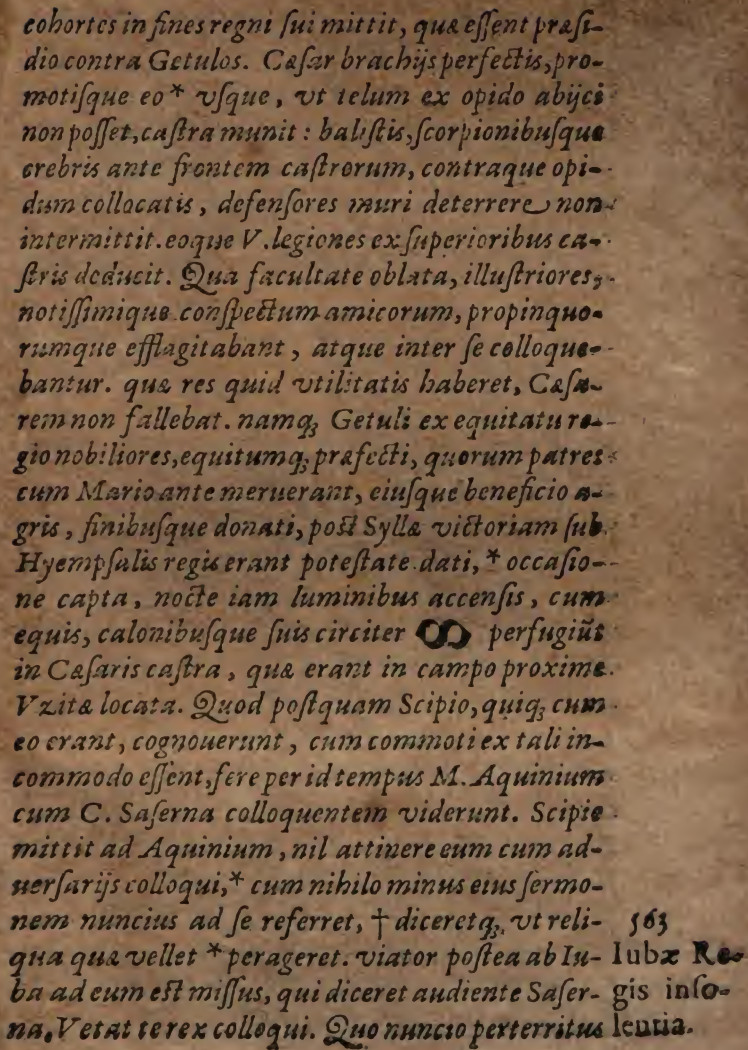 cohortes in fines regni ſui mittit, quæ eſſent præſi-
dio contra Getulos. Cæſar brachijs perfectis, pro-
motiſque eo* vſque, vt telum ex opido abijci
non poſſet, caſtra munit: baliſtis, ſcorpionibuſque
crebris ante frontem caſtrorum, contraque opi-
dum collocatis, defenſores muri deterrere non
intermittit. eoque V. legiones ex ſuperioribus ca-
ſtris deducit. Qua facultate oblata, illuſtriores,
notiſſimique conſpectum amicorum, propinquo-
rumque efflagitabant, atque inter ſe colloque-
bantur. quæ res quid vtilitatis haberet, Cæſa-
rem non fallebat. namq; Getuli ex equitatu re-
gio nobiliores, equitumq; præfecti, quorum patres
cum Mario ante meruerant, eiuſque beneficio a-
gris, finibuſque donati, poſt Syllæ victoriam ſub
Hyempſalis regis erant poteſtate dati, * occaſio-
ne capta, nocte iam luminibus accenſis, cum
equis, calonibuſque ſuis circiter ↀ perfugiũt
in Cæſaris caſtra, quæ erant in campo proxime
Vzitæ locata. Quod poſtquam Scipio, quiq; cum
eo erant, cognouerunt, cum commoti ex tali in-
commodo eſſent, fere per id tempus M. Aquinium
cum C. Saſerna colloquentem viderunt. Scipio
mittit ad Aquinium, nil attinere eum cum ad-
uerſarijs colloqui,* cum nihilo minus eius ſermo-
nem nuncius ad ſe referret, † diceretq; vt reli- 563
qua quæ vellet * perageret. viator poſtea ab Iu- Iubæ Re-
ba ad eum eſt miſſus, qui diceret audiente Saſer- gis inſo-
na, Vetat te rex colloqui. Quo nuncio perterritus lentia.